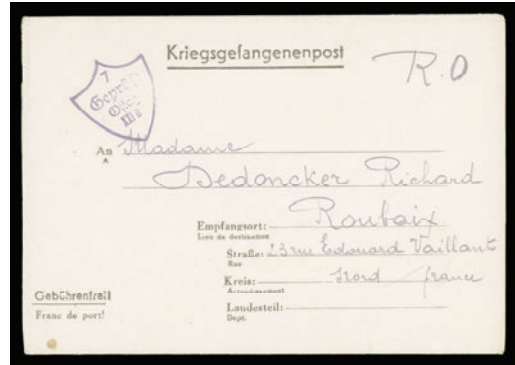 Kriegsgefangenenpost
R.O
7
Geprüft
Oflag
An Madame
A
Dedoncker Richard
Empfangsort: Roubaix
Lieu de destination
Straße: 23 rue Edouard Vaillant
Rue
Kreis: Nord france
Arrondissement
Landesteil:
Dept.
Gebührenfrei!
Franc de port!